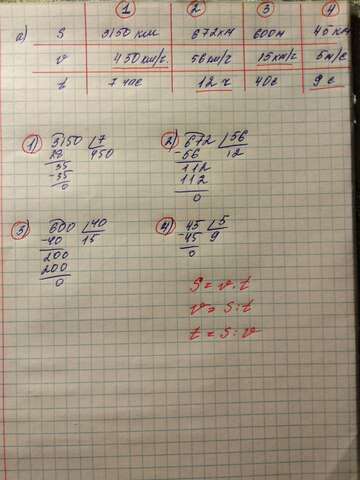 1 2 3 4
а) S 3150 км 672км 600м 45 км
v 450км/ч. 56км/ч 15км/ч 5м/с
t 7 час 12 ч 40с 9 с
1) 3150 7
28 450
35
-35
0
2) 672 56
-56 12
112
112
0
3) 600 40
-40 15
200
200
0
4) 45 5
-45 9
0
S = v · t
v = S : t
t = S : v